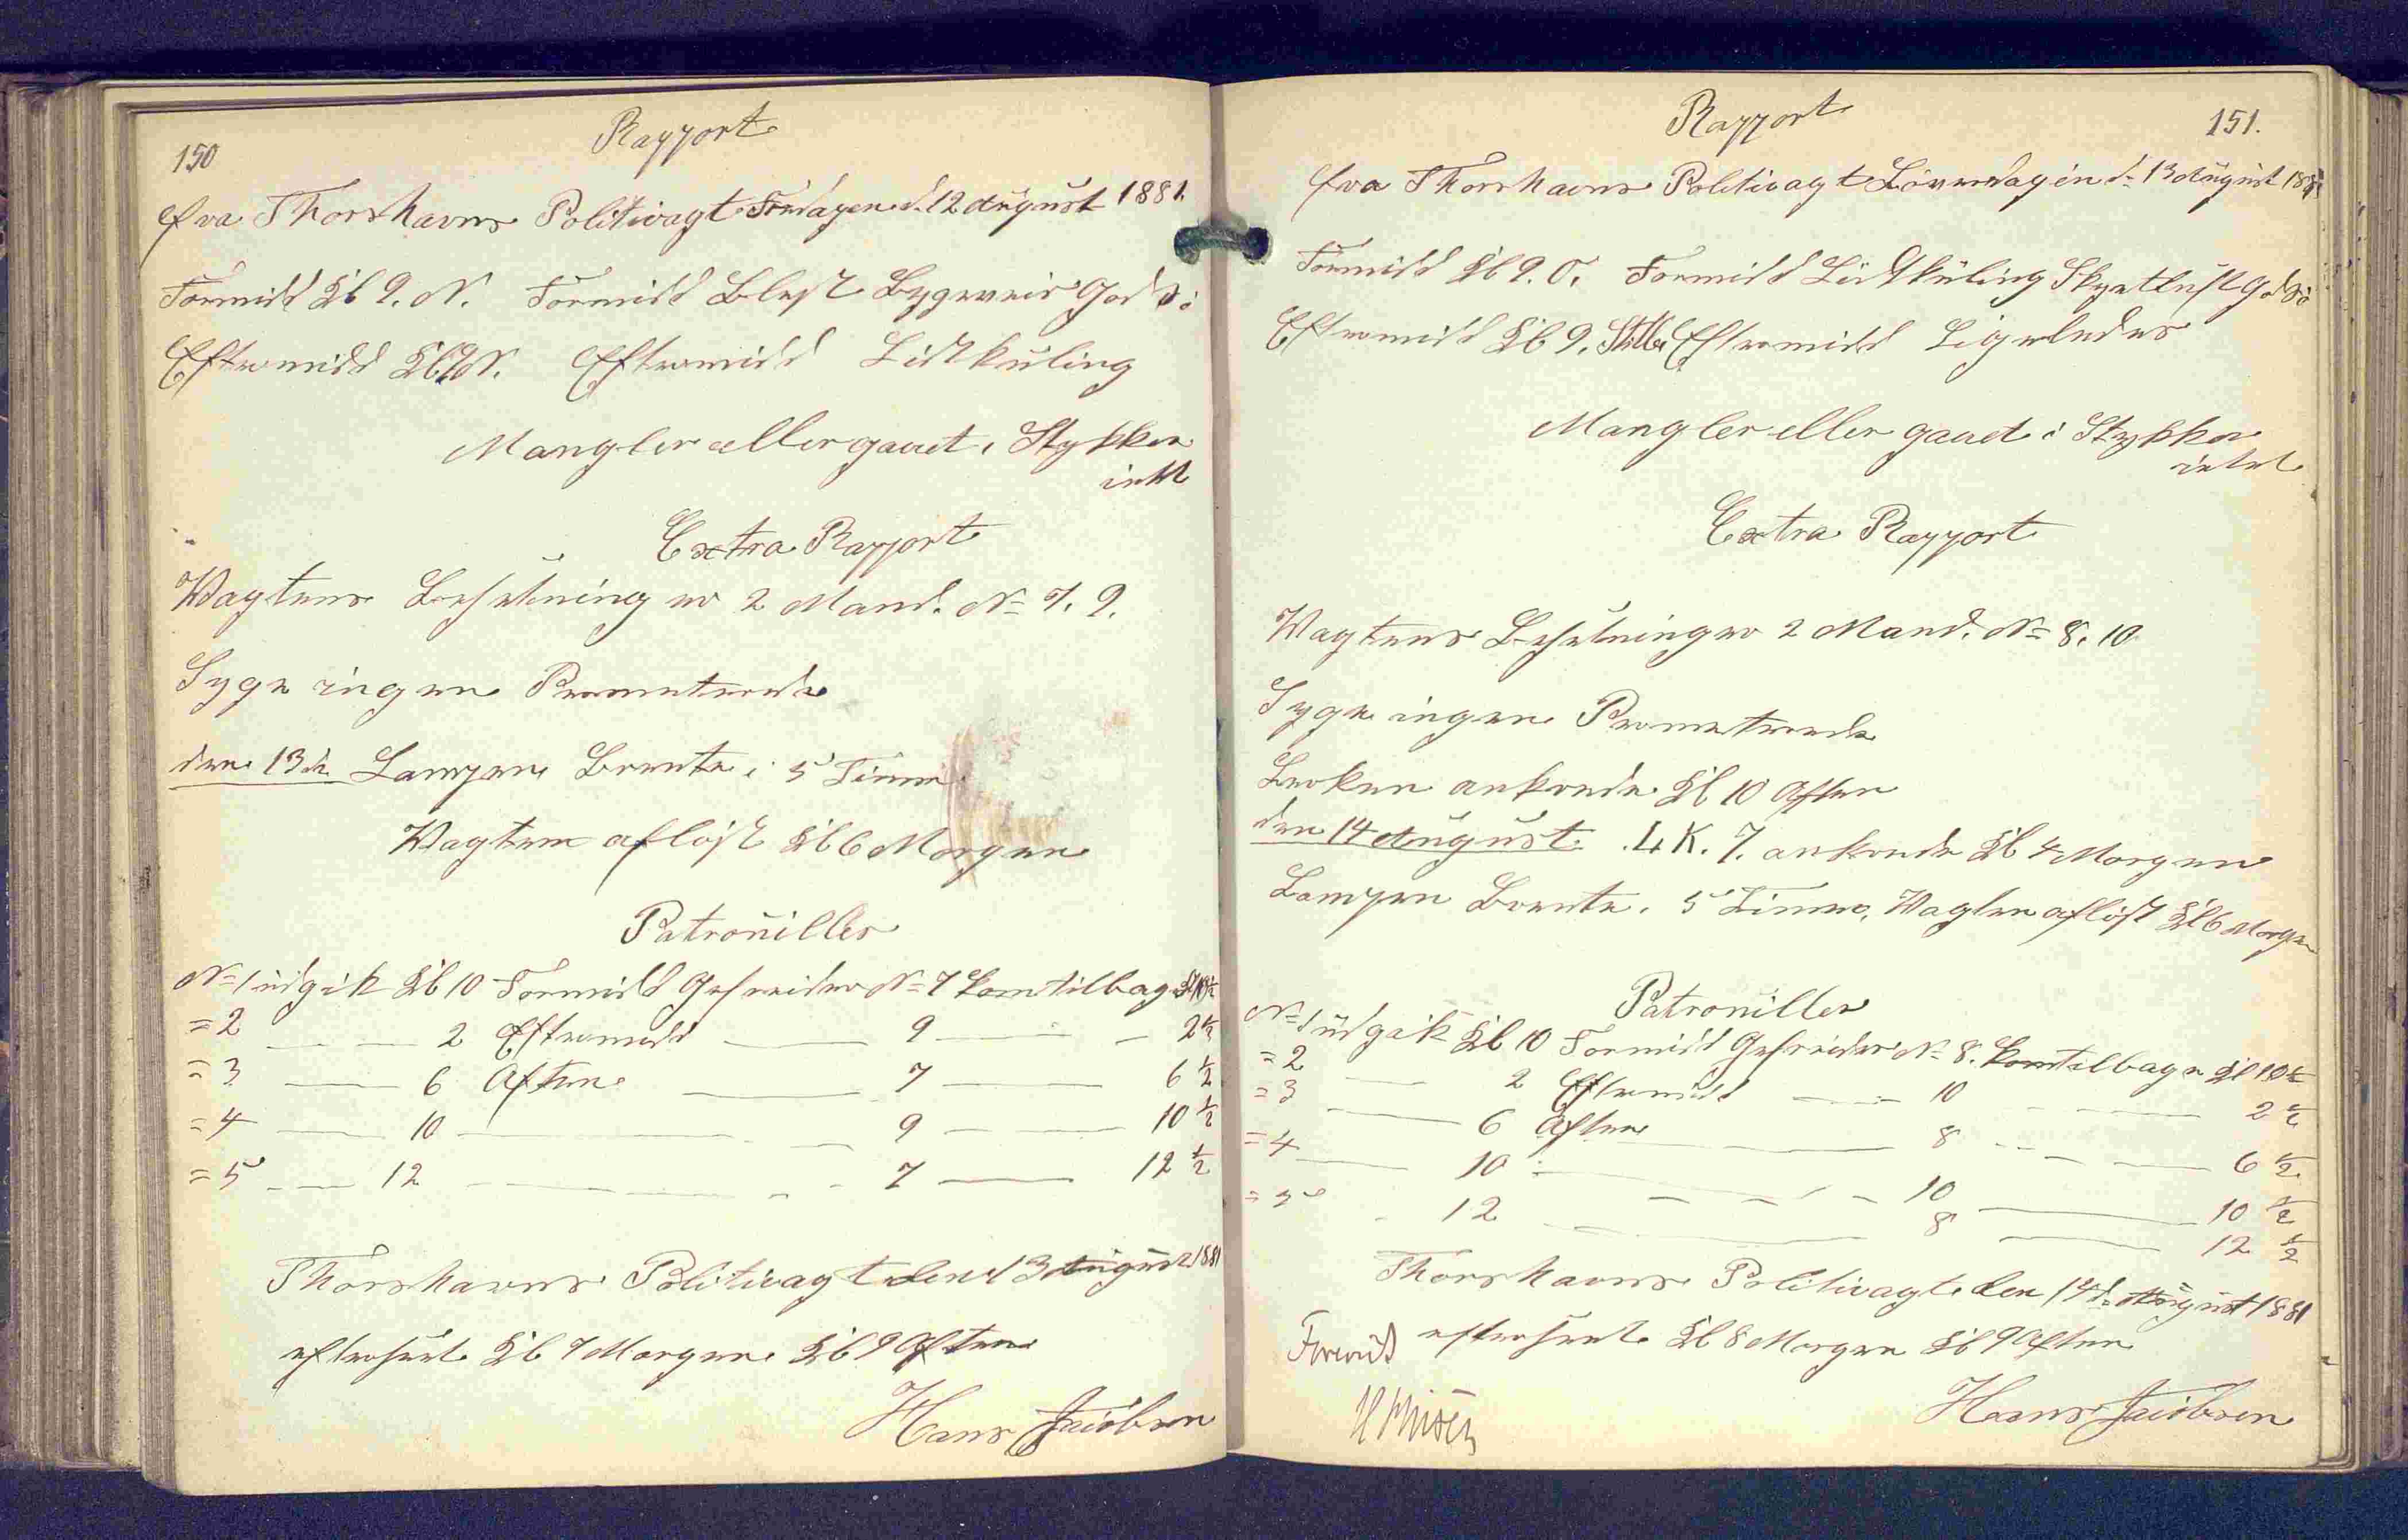 150
Rapport
fra Thorshavns Politivagt Fredagen d. 12 August 1881.
Formidd Kl 9. N. Formidd Blest Bygeveir God Sö
Eftermidd Kl 9 N. Eftermidd Lidt kuling
Mangler eller gaaet i Stykker
intet
Extra Rapport
Wagtens Besetning er 2 Mand. No 7. 9.
Syge ingen Permeterede
den 13de Lampen Brente i 5 Timer
Wagten aflöst Kl 6 Morgen
Patrouiller
No 1 udgik Kl 10 Formidd Gefreider No 7 kom tilbage Kl 10½
= 2 — — 2 Eftermidd — 9 — — 2½
= 3 — 6 Aften — 7 — 6½
= 4 — 10 — — 9 — — 10½
= 5 — — 12 — — 7 — 12½
Thorshavns Politivagt den 13 August 1881
efterseet Kl 7 Morgen Kl 9 Aften
Hans Jacobsen
151.
Rapport
fra Thorshavns Politivagt Löverdagen d. 13 August 1881
Formidd Kl 9. O. Formidd Lidt kuling Skyetluft God Sö
Eftermidd Kl 9. Stille Eftermidd Ligeledes
Mangler eller gaaet i Stykker
intet
Extra Rapport
Wagtens Besetning er 2 Mand. No 8. 10
Syge ingen Permeterede
ankrede Kl 10 Aften
den 14 August. ankrede Kl 4 Morgen
Lampen Brente i 5 Timer, Wagten aflöst Kl 6 Morgen
Patrouiller
No 1 udgik Kl 10 Formidd Gefreider No 8. kom tilbage Kl 10½
= 2 — 2 Eftermidd — 10 — — 2½
= 3 — 6 Aften — 8 — — 6½
= 4 — 10 — — 10 — 10½
= 5 - 12 — 8 — 12½
Thorshavns Politivagt den 14d. August 1881
efterseet Kl 8 Morgen Kl 9 Aften
Forevist
Hans Jacobsen